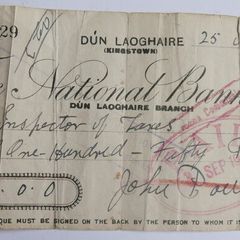 29 DÚN LAOGHAIRE 25
(KINGSTOWN)
National Bank
DÚN LAOGHAIRE BRANCH
Inspector of Taxes
One Hundred - Fifty
.0.0 John
QUE MUST BE SIGNED ON THE BACK BY THE PERSON TO WHOM IT IS